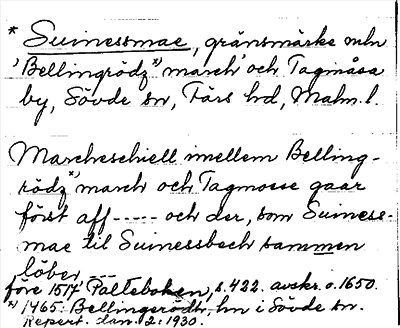 * Suinessmae, gränsmärke mln
'Bellingrödz*) march' och Tagmåsa
by, Sövde sn, Färs hd, Malm. l.
Marcheschiell imellem Belling-
rödz*) march och Tagmosse gaar
först aff ----- och der, som Suiness-
mae til Suinessbech sammen
löber ---
före 1514 Palteboken, s. 422. avskr. o. 1650.
*) 1465: Bellingerödh, hn i Sövde sn.
Repert. dan. 12: 1930.